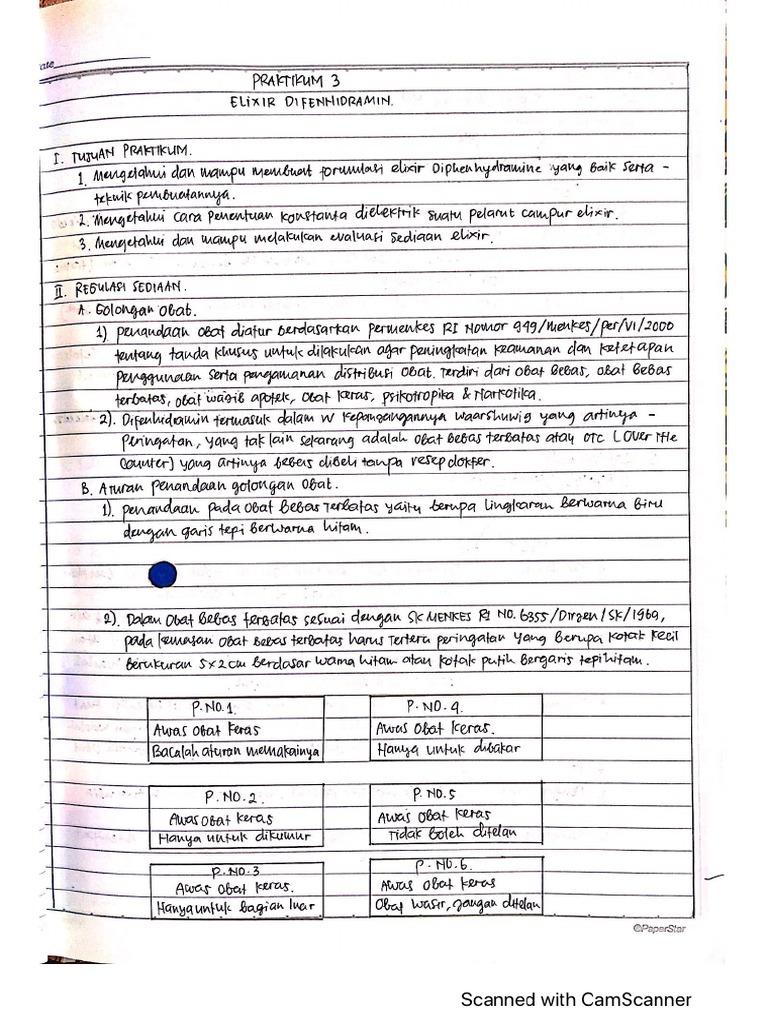 ate
PRAKTIKUM 3
ELIXIR DIFENHIDRAMIN.
I. TUJUAN PRAKTIKUM.
1. Mengetahui dan mampu membuat formulasi elixir Diphenhydramine yang baik serta -
teknik pembuatannya.
2. Mengetahui cara penentuan konstanta dielektrik suatu pelarut campur elixir.
3. Mengetahui dan mampu melakukan evaluasi sediaan elixir.
II. REGULASI SEDIAAN.
A. Golongan Obat.
1) penandaan obat diatur berdasarkan permenkes RI Nomor 949/menkes/per/VI/2000
tentang tanda khusus untuk dilakukan agar peningkatan keamanan dan ketetapan
penggunaan serta pengamanan distribusi obat. Terdiri dari obat Bebas, obat Bebas
terbatas, obat wagib apotek, obat keras, psikotropika & Narkotika.
2). Difenhidramin termasuk dalam W kepangangannya waarshuwig yang artinya -
peringatan, yang tak lain sekarang adalah obat bebas terbatas atau OTC (Over the
Counter) yang artinya bebas dibeli tanpa resep dokter.
B. Aturan penandaan golongan obat.
1). penandaan pada obat Bebas Terbatas yaitu berupa lingkaran berwarna Biru
dengan garis tepi Berwarna hitam.
2). Dalam obat Bebas terbatas sesuai dengan SK MENKES RI NO. 6355/Dirjen/SK/1969,
pada kemasan obat bebas terbatas harus Tertera peringatan yang Berupa kotak kecil
Berukuran 5x2 cm Berdasar warna hitam atau kotak putih Bergaris tepi hitam.
P. NO. 1.
Awas Obat Keras
Bacalah aturan memakainya
P. NO. 4.
Awas Obat Keras.
Hanya untuk dibakar
P. NO. 2.
Awas Obat keras
Hanya untuk dikumur
P. NO. 5
Awas Obat Keras
Tidak boleh ditelan
P. NO. 3
Awas Obat Keras.
Hanya untuk bagian luar
P. NO. 6.
Awas Obat Keras
Obat wasir, jangan ditelan
©PaperStar
Scanned with CamScanner